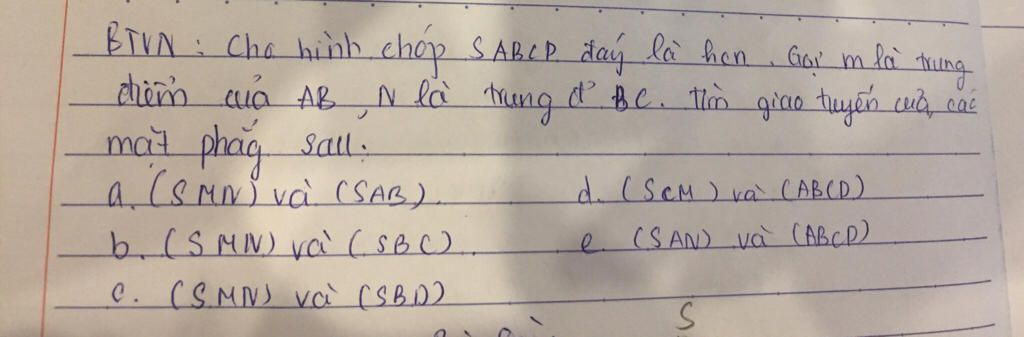 BTVN: Cho hình chóp SABCD đaý là hcn. Gọi m là trung
điểm của AB, N là trung đ' BC. tìm giao tuyến của các
mặt phẳg sau:
a. (SMN) và (SAB).
d. (SCM) và (ABCD)
b. (SMN) và (SBC)
e. (SAN) và (ABCD)
c. (SMN) và (SBD)
S